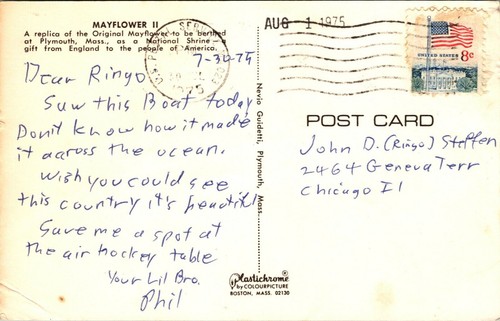 MAYFLOWER II
A replica of the Original Mayflower to be berthed
at Plymouth, Mass., as a National Shrine
gift from England to the people of America.
7-30-75
Dear Ringo
Saw this Boat today
Don't know how it made
it across the ocean.
Wish you could see
this country it's beautiful
Save me a spot at
the air hockey table
Your Lil Bro.
Phil
Nevio Guidetti, Plymouth, Mass.
Plastichrome
by COLOURPICTURE
BOSTON, MASS. 02130
AUG 1 1975
UNITED STATES 8c
POST CARD
John D. (Ringo) Steffen
2464 Geneva Terr
Chicago Il